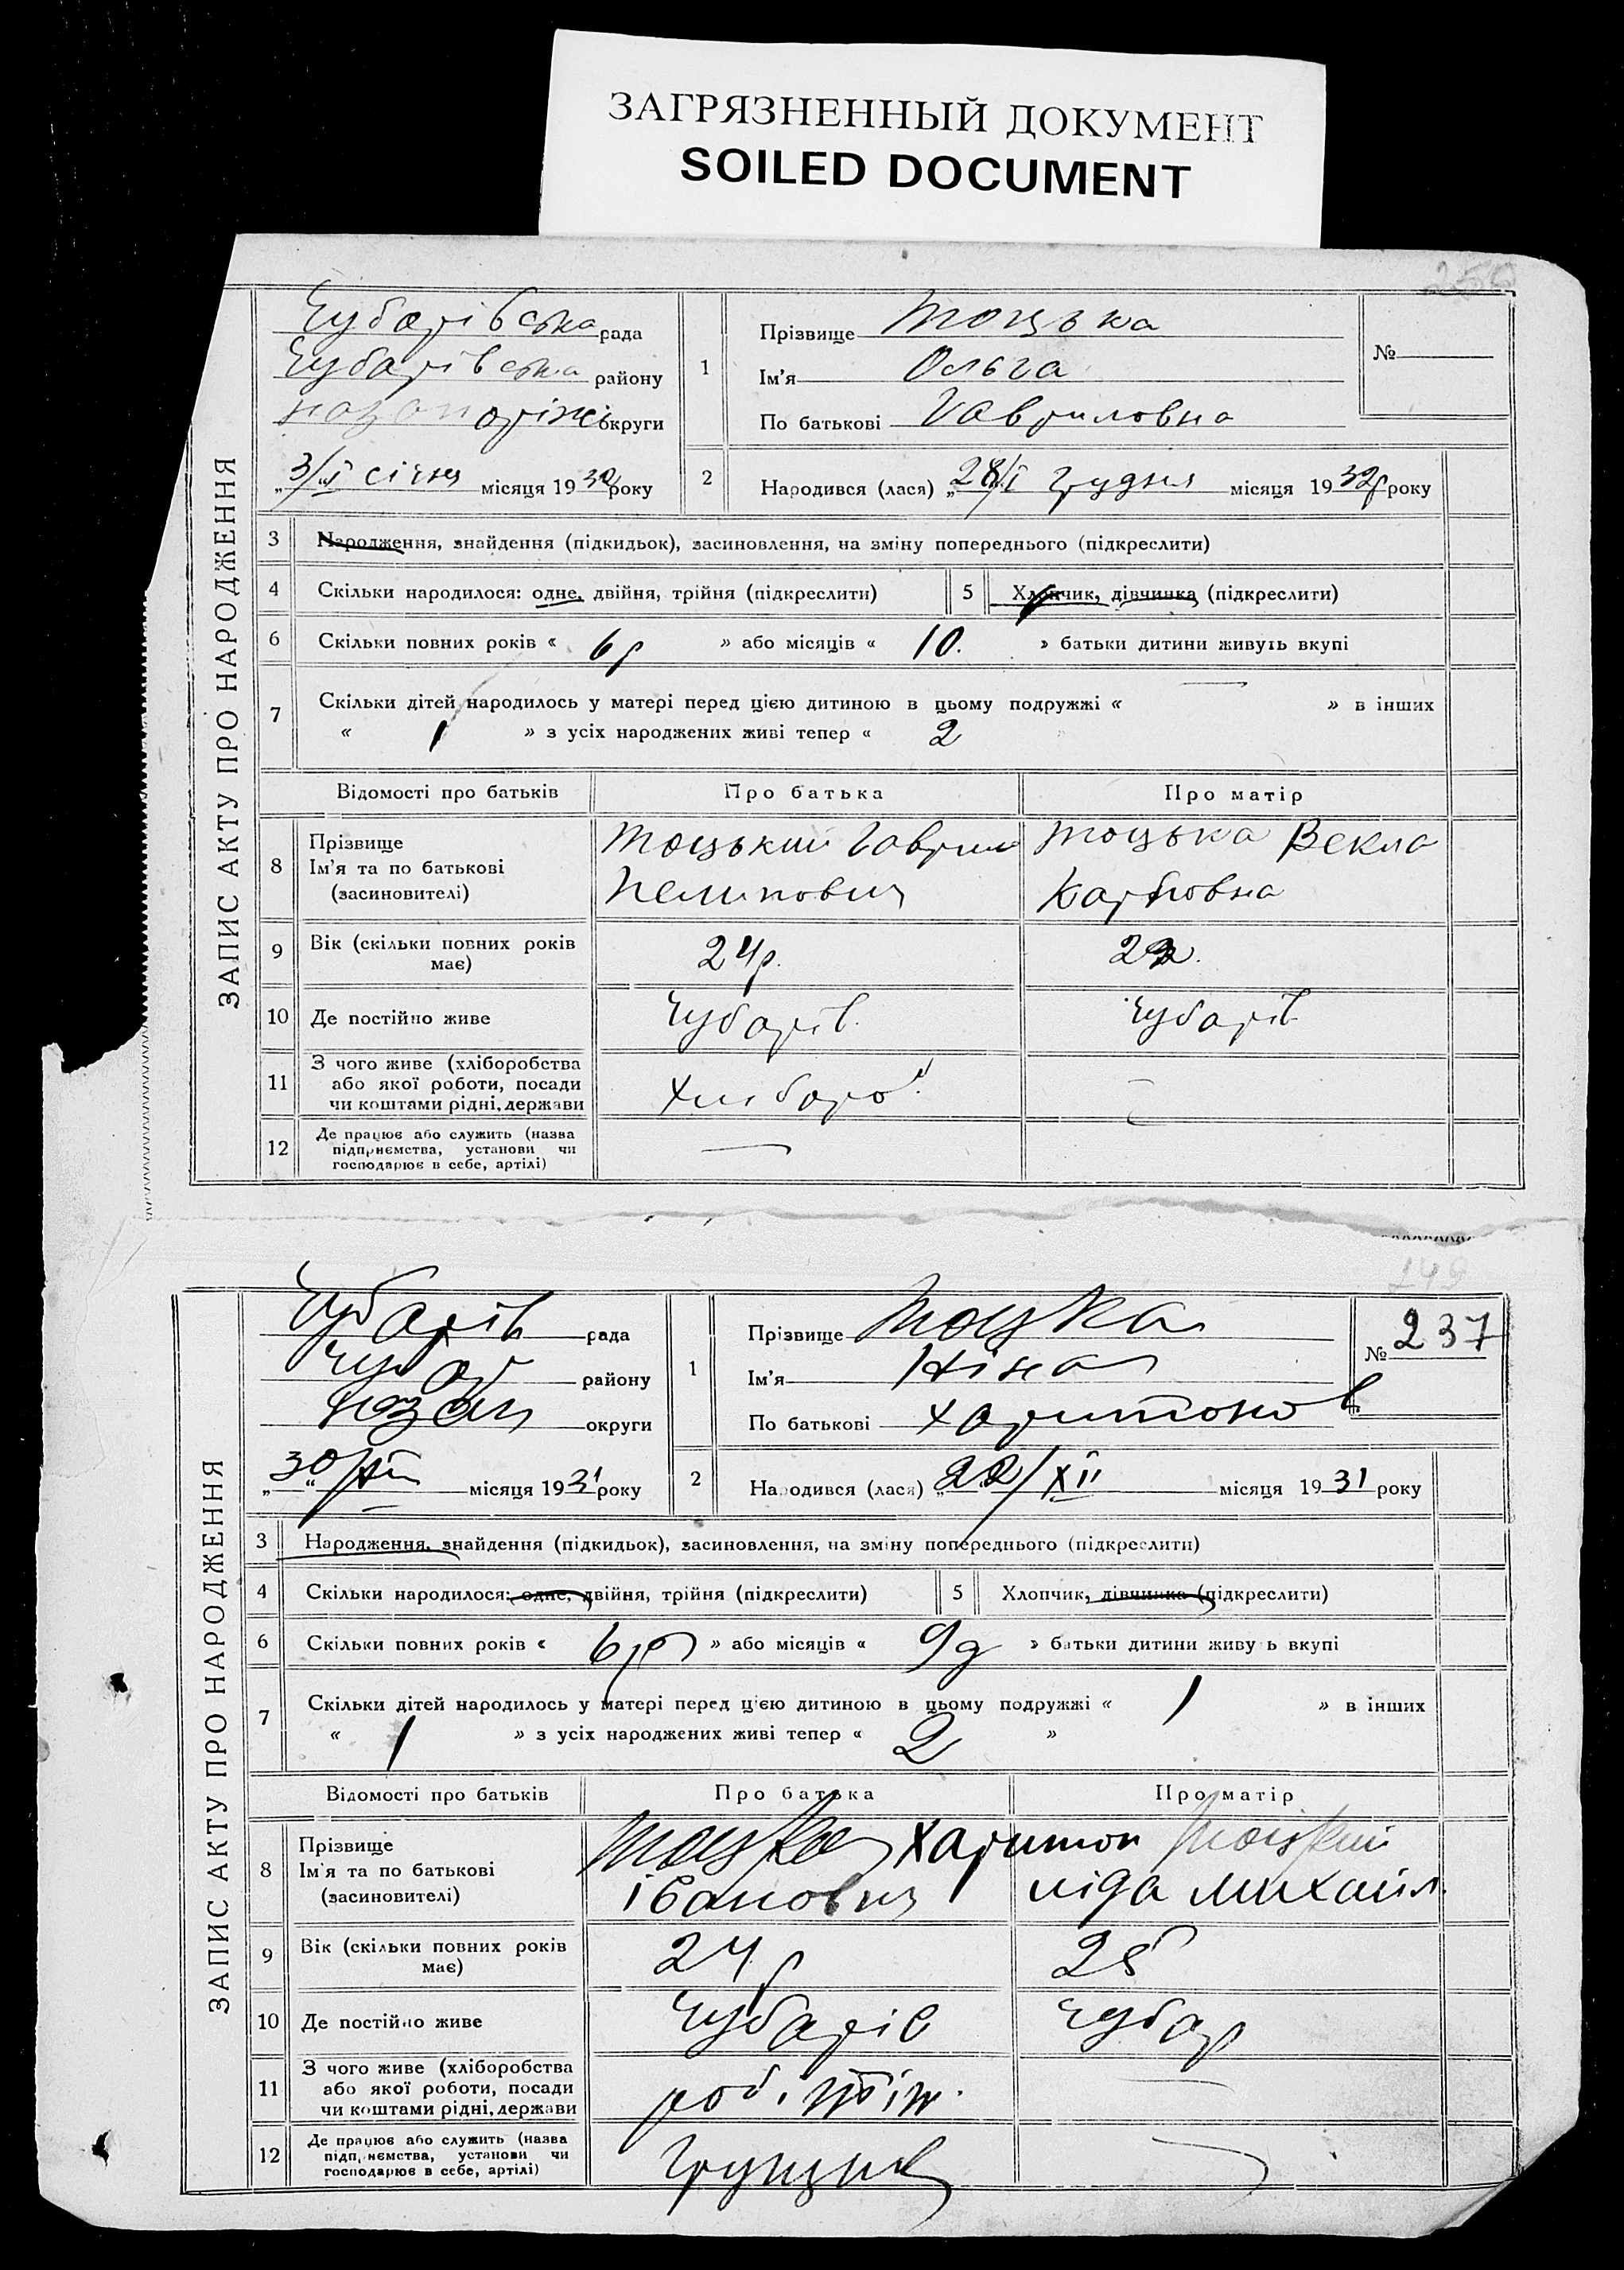 ЗАГРЯЗНЕННЫЙ ДОКУМЕНТ
SOILED DOCUMENT
250
ЗАПИС АКТУ ПРО НАРОДЖЕННЯ
Чубарівська рада
Чубарівська району
округи
3/I січня місяця 1930 року
1
Прізвище Тоцька
Ім'я Ольга
По батькові Гавриловна
№
2
Народився (лася) „28/I грудня місяця 1932р року
3 Народження, знайдення (підкидьок), засиновлення, на зміну попереднього (підкреслити)
4 Скільки народилося: одне, двійня, трійня (підкреслити)
5 Хлопчик, дівчинка (підкреслити)
6 Скільки повних років « 6р » або місяців « 10. » батьки дитини живуть вкупі
7 Скільки дітей народилось у матері перед цією дитиною в цьому подружжі « — » в інших
« 1 » з усіх народжених живі тепер « 2 »
Відомості про батьків Про батька Про матір
8 Прізвище
Ім'я та по батькові
(засиновителі)
Тоцький Гаврило
Пелипович
Тоцька Векла
Карповна
9 Вік (скільки повних років
має)
24р.
10 Де постійно живе Чубарів. Чубарів
11 З чого живе (хліборобства
або якої роботи, посади
чи коштами рідні, держави
хлибороб —
12 Де працює або служить (назва
підприємства, установи чи
господарює в себе, артілі)
—
249
ЗАПИС АКТУ ПРО НАРОДЖЕННЯ
Чубарів рада
Чубар району
округи
„30/XII місяця 1931 року
1
Прізвище Тоцка
Ім'я Ніна
По батькові Харитонов
№ 237
2
Народився (лася) „22/XII місяця 1931 року
3 Народження, знайдення (підкидьок), засиновлення, на зміну попереднього (підкреслити)
4 Скільки народилося: одне, двійня, трійня (підкреслити)
5 Хлопчик, дівчинка (підкреслити)
6 Скільки повних років « 6р » або місяців « 9 » батьки дитини живуть вкупі
7 Скільки дітей народилось у матері перед цією дитиною в цьому подружжі « 1 » в інших
« 1 » з усіх народжених живі тепер « 2 »
Відомості про батьків Про батька Про матір
8 Прізвище
Ім'я та по батькові
(засиновителі)
Харитон
Іванович
ліда Михайл.
9 Вік (скільки повних років
має)
24р 25
10 Де постійно живе Чубарів Чубар
11 З чого живе (хліборобства
або якої роботи, посади
чи коштами рідні, держави
—
12 Де працює або служить (назва
підприємства, установи чи
господарює в себе, артілі)
—